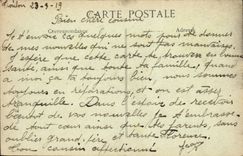 Toulon 23-9-19
Bien chère cousine
CARTE POSTALE
Correspondance
Je t'envoie ces quelques mots pour te donner
de mes nouvelles qui ne sont pas mauvaises.
J'espère que cette carte te trouvera en bonne
santé, ainsi que toute la famille, quant
à moi ça va toujours bien, nous sommes
toujours en réparations, et on est assez
tranquille. Dans l'espoir de recevoir
bientôt de vos nouvelles je t'embrasse
dont cœur ainsi que tes parents, sans
oublier Grand'mère, et tante Florence.
Ton cousin affectionné